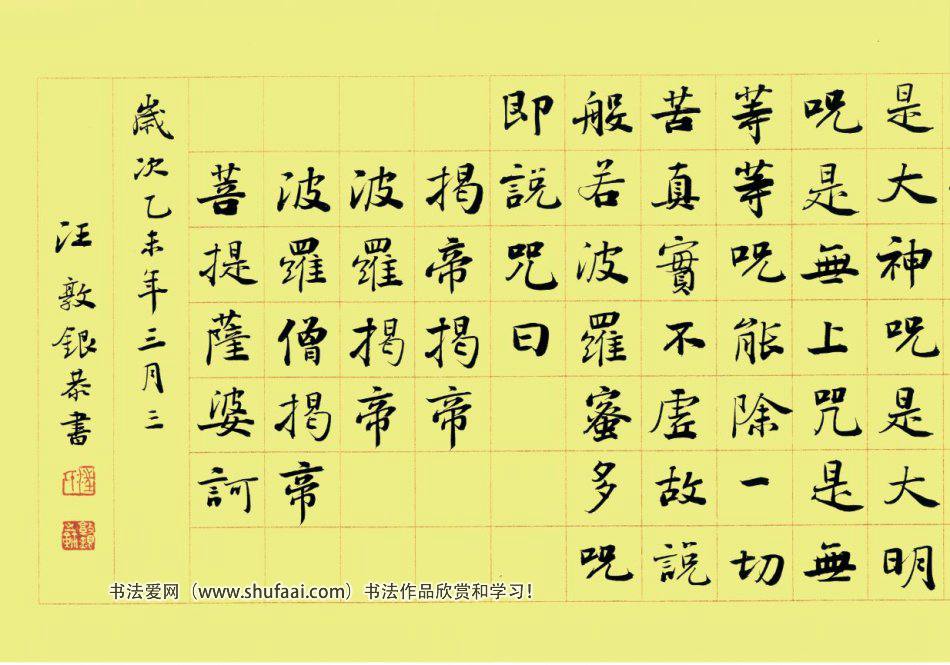 是大神呪是大明
呪是無上咒是無
等等呪能除一切
苦真實不虛故説
般若波羅蜜多呪
即説咒曰
揭帝揭帝
波羅揭帝
波羅僧揭帝
菩提薩婆訶
歲次乙未年三月三
汪敦銀恭書
书法爱网（www.shufaai.com）书法作品欣赏和学习！